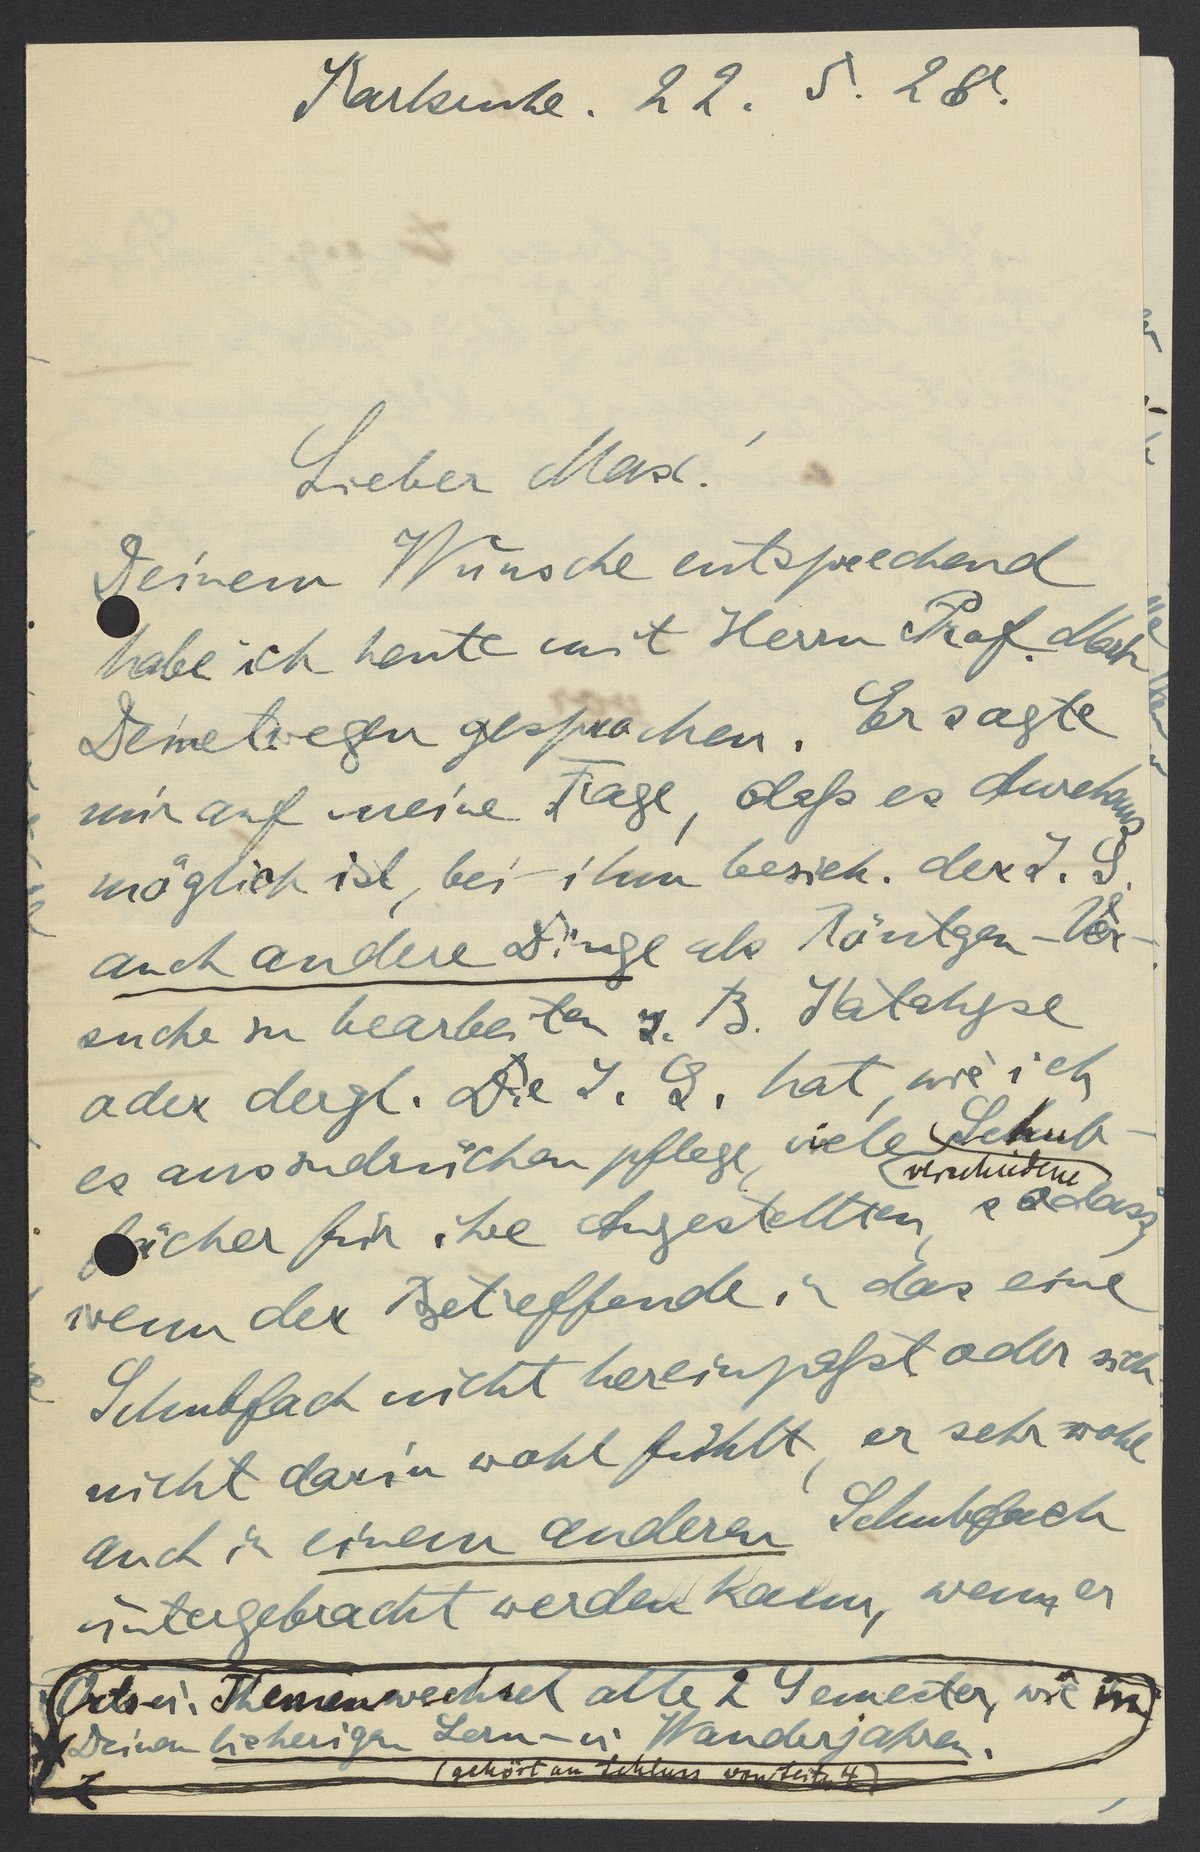 Karlsruhe. 22. 5. 28.
Lieber Max!
Deinem Wunsche entsprechend
habe ich heute mit Herrn Prof. Mark
Deinetwegen gesprochen. Er sagte
mir auf meine Frage, daß es durchaus
möglich ist, bei ihm bezieh. der I. G.
auch andere Dinge als Röntgen-Ver-
suche zu bearbeiten z. B. Katalyse
oder dergl. Die I. G. hat, wie ich
es auszudrücken pflege, viele Schub-
verschiedene
fächer für ihre Angestellten, sodass,
wenn der Betreffende in das eine
Schubfach nicht hereinpaßt oder sich
nicht darin wohl fühlt, er sehr wohl
auch in einem anderen Schubfach
untergebracht werden kann, wenn er
Orts- u. Themenwechsel alle 2 Semester, wie in
Deinen bisherigen Lern- u. Wanderjahren.
(gehört an Schluss von Seite 4)